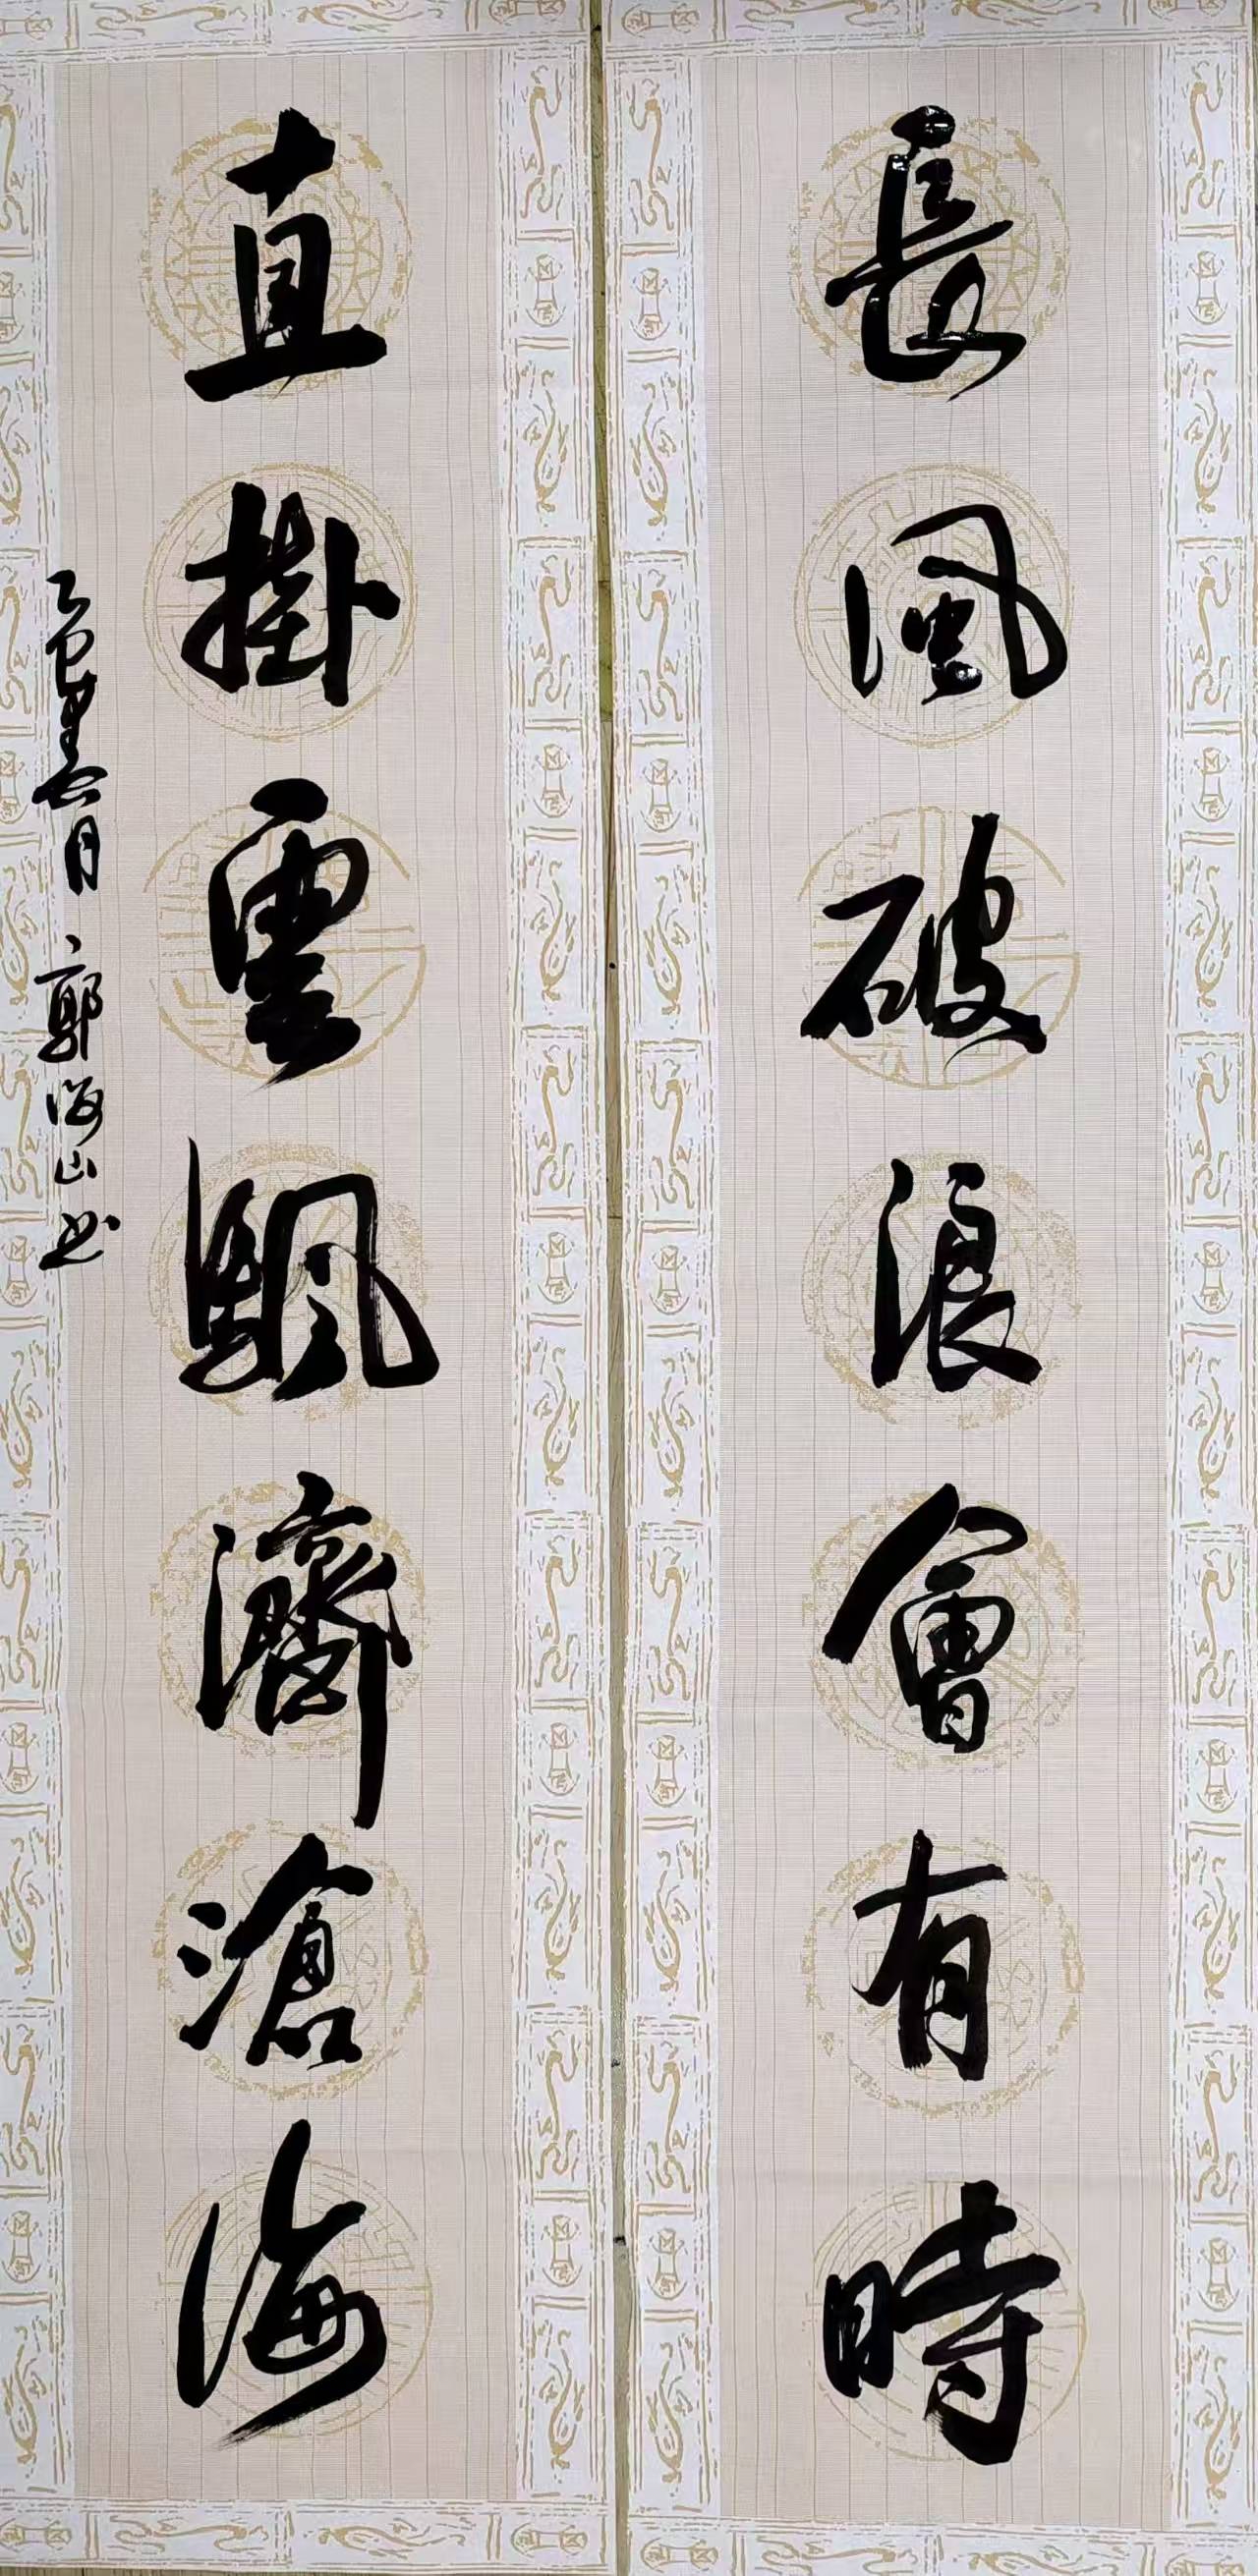 長風破浪會有時
直掛雲颿濟滄海
乙巳 月 郭海山书